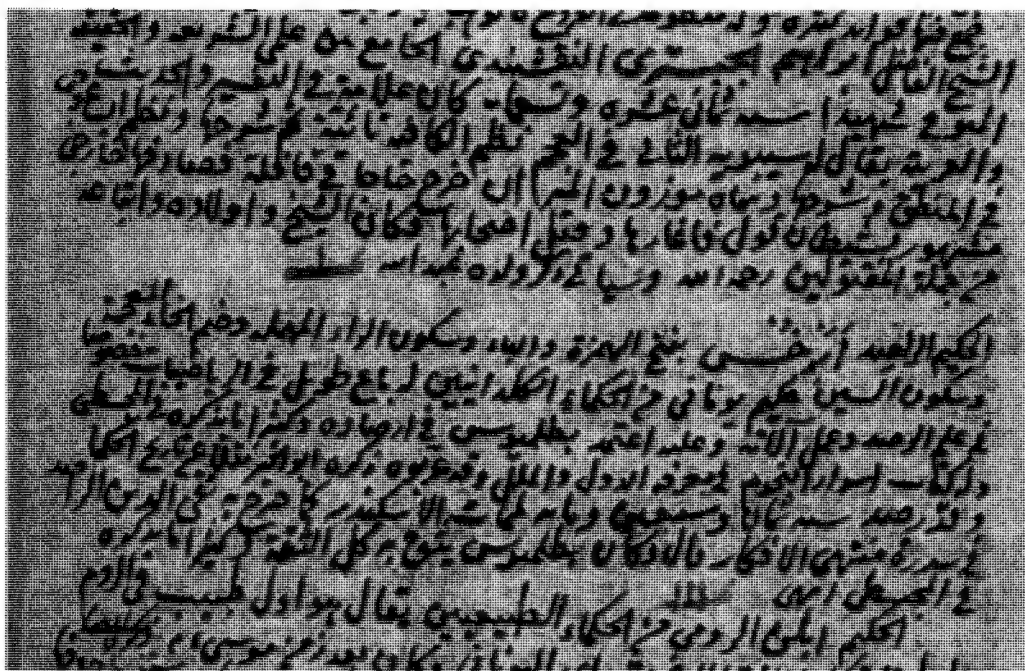 الشيخ الفاضل ابراهيم الشبستري النقشبندي الجامع بين علمي الشريعة والحقيقة
المتوفى شهيدا سنه ثمان عشره وتسعمايه كان علامة في التفسير والحديث
والعربية يقال له سيبويه الثاني في العجم نظم الكافيه تائية ثم شرحها ونظم
في المنطق وشرحها وسماه موزون الميزان خرج حاجا في قافلة فصادفها خارجي
مشهور بشيطان قولي فاغار ها وقتل اصحابها فكان الشيخ واولاده واتباعه
من جملة المقتولين رحمه الله وسياتي ذكر ولاده عبد الله
الحكيم الراصد ابرخس بفتح الهمزة والباء وسكون الراء المهمله وضم الخاء المعجمة
وسكون السين حكيم يوناني من الحكماء الكلدانيين له باع طويل في الرياضيات خصوصا
في علم الرصد وعمل الاته وعليه اعتمد بطلميوس في ارصاده وكثيرا ما يذكره في المجسطي
وله كتاب اسرار النجوم في معرفة الدول والملل ذكره ابو الفرج في تاريخ الحكما
وقد رصد سنه ثمان وسبعين ومايه لممات الاسكندر كما صرح به تقي الدين الراصد
في سدرة منتهى الافكار قال وكان بطلميوس يثق به كل الثقة وكثيرا ما يذكره
في المجسطي انتهى
الحكيم ابلن الرومي من الحكماء الطبيعيين يقال هو اول طبيب في الروم